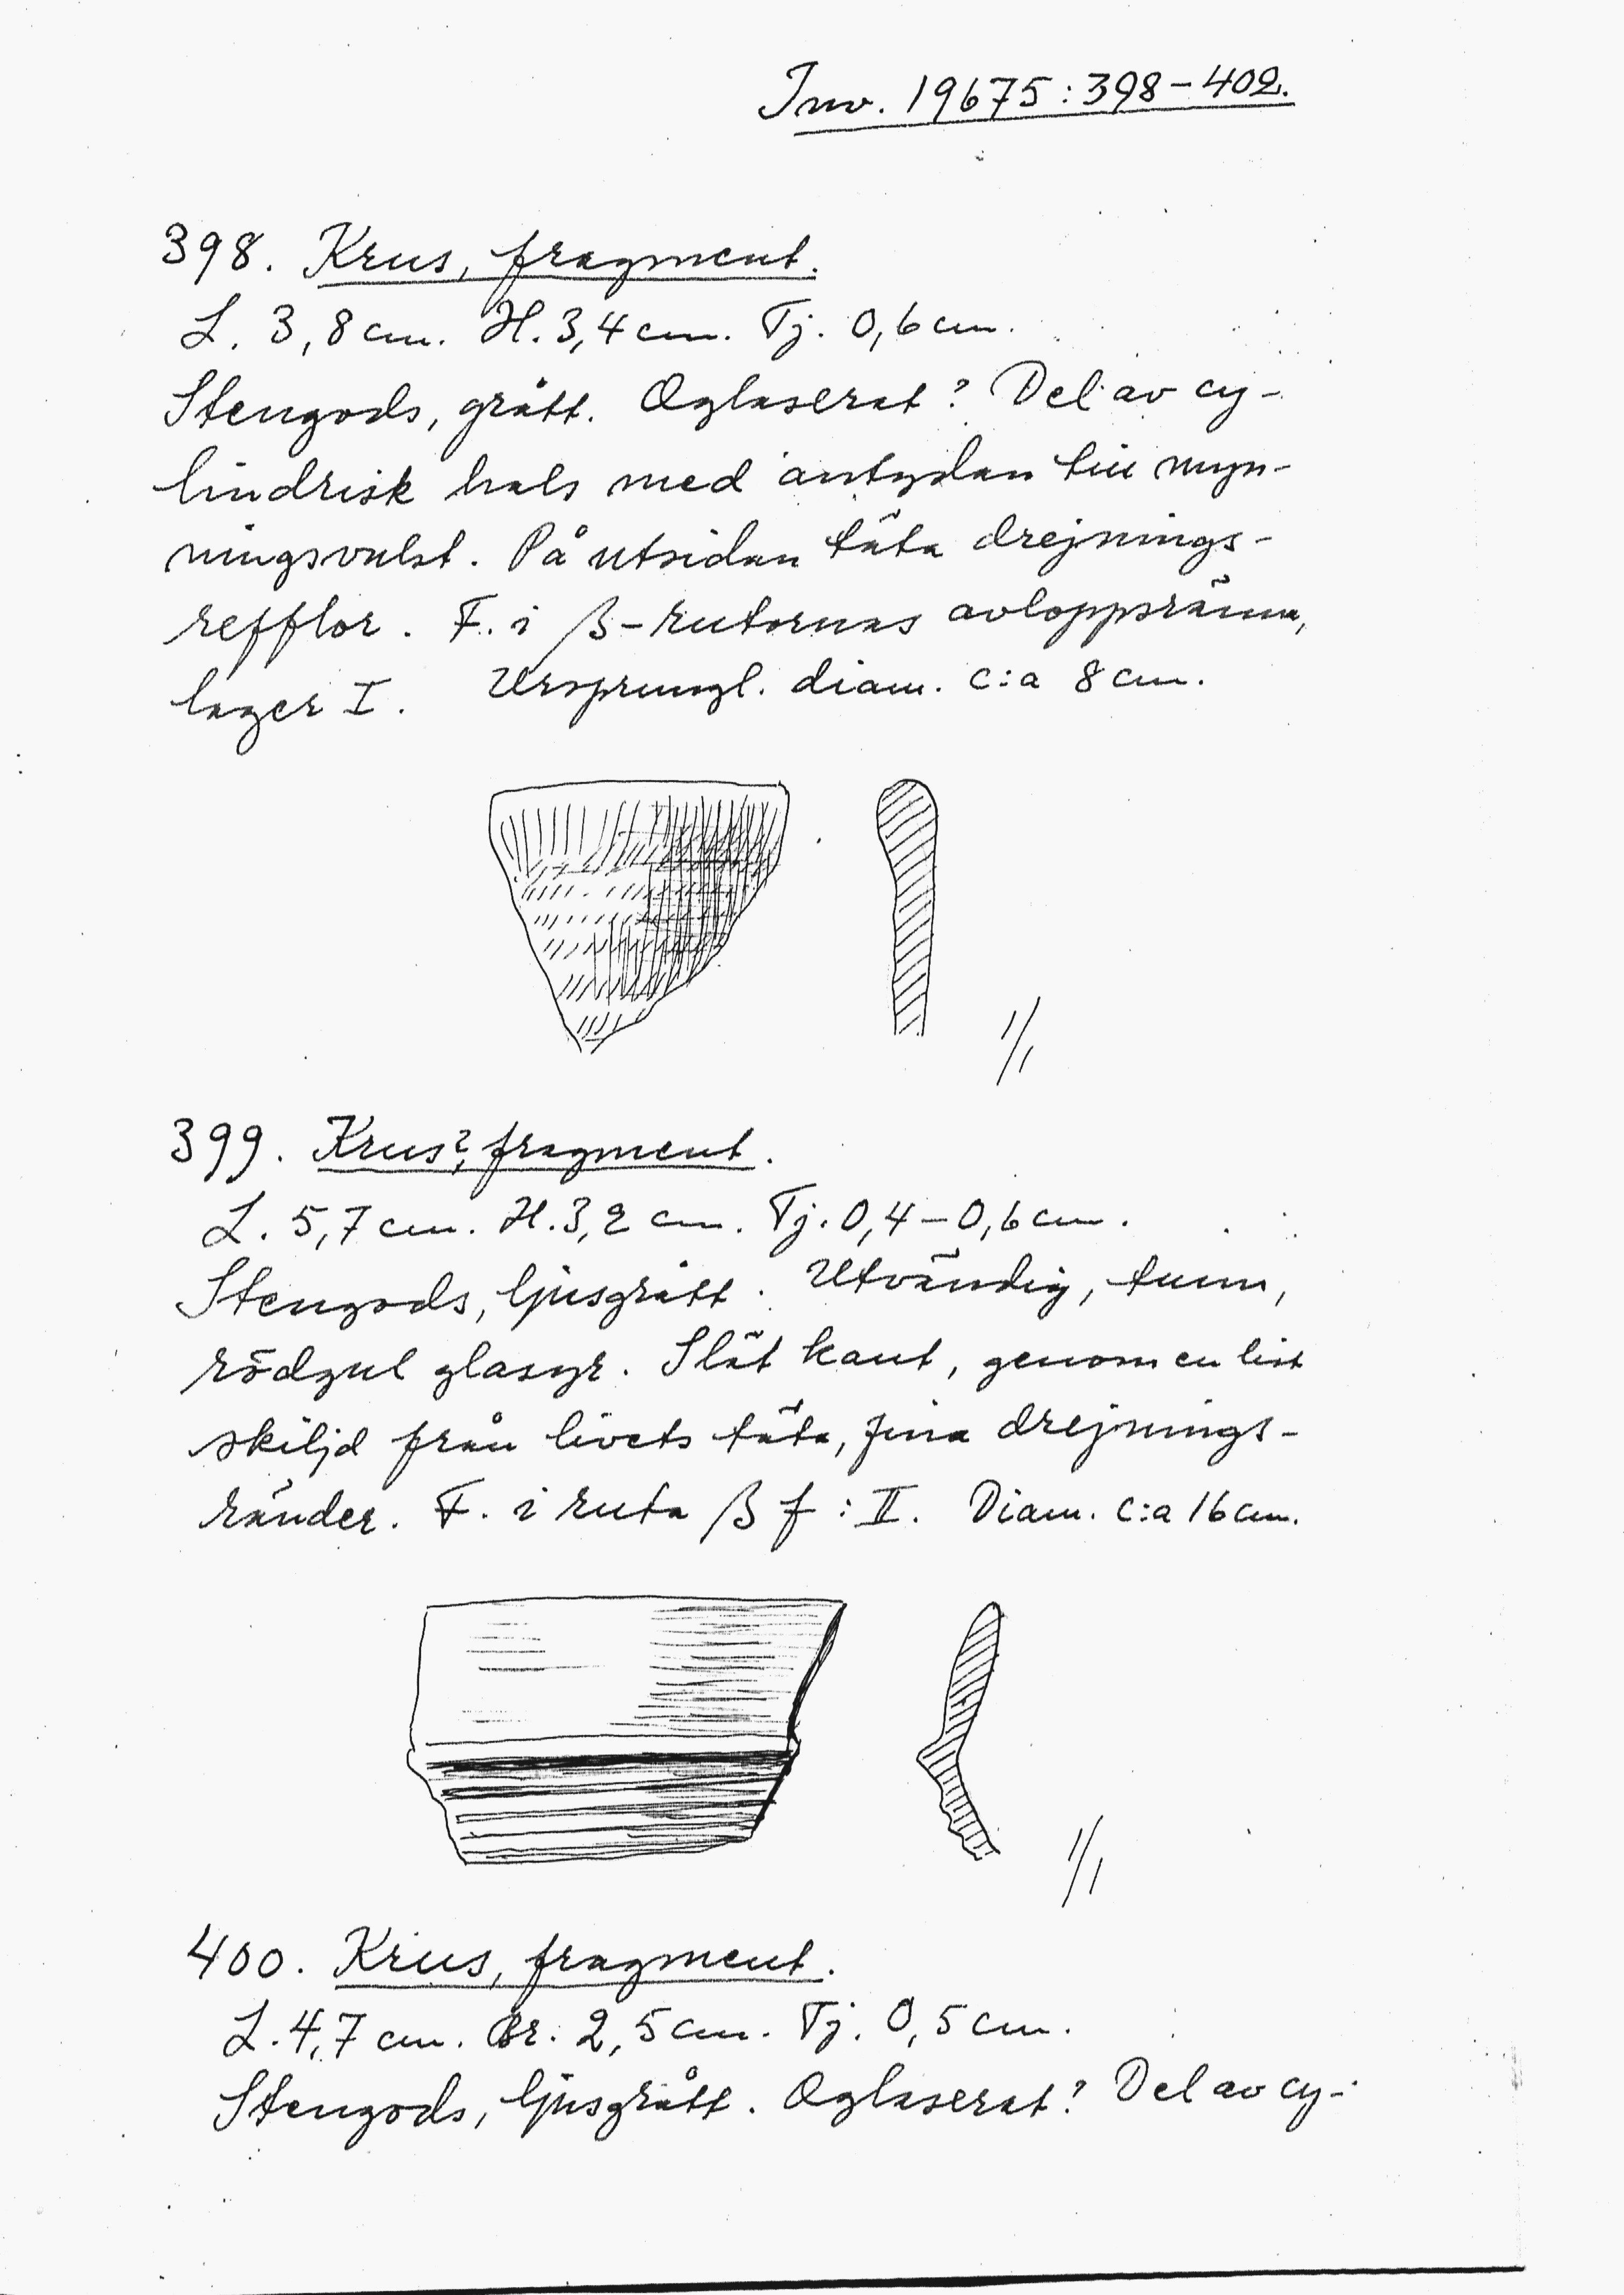 Inv. 19675:398-402.
398. Krus, fragment.
L. 3,8 cm. H. 3,4 cm. Tj. 0,6 cm.
Stengods, grått. Oglaserat? Del av cy-
lindrisk hals med antydan till myn-
ningsvulst. På utsidan täta drejnings-
refflor. F. i β-rutornas avloppsränna,
lager I. Ursprungl. diam. c:a 8 cm.
1/1
399. Krus?, fragment.
L. 5,7 cm. H. 3,2 cm. Tj. 0,4-0,6 cm.
Stengods, ljusgrått. Utvändig, tunn,
rödgul glasyr. Slät kant, genom en list
skiljd från livets täta, fina drejnings-
ränder. F. i ruta β f : II. Diam. c:a 16 cm.
1/1
400. Krus, fragment.
L. 4,7 cm. Br. 2,5 cm. Tj. 0,5 cm.
Stengods, ljusgrått. Oglaserat? Del av cy-